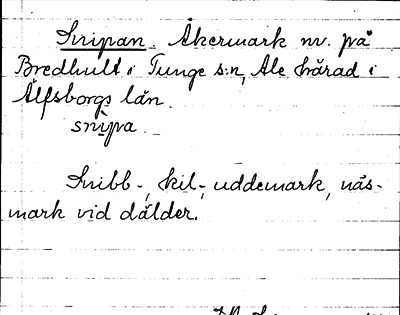 Snipan. Åkermark nv. på
Bredhult i Tunge s:n, Ale härad i
Älfsborgs län.
snipa.
Snibb-, kil-, uddemark, näs-
mark vid dälder.